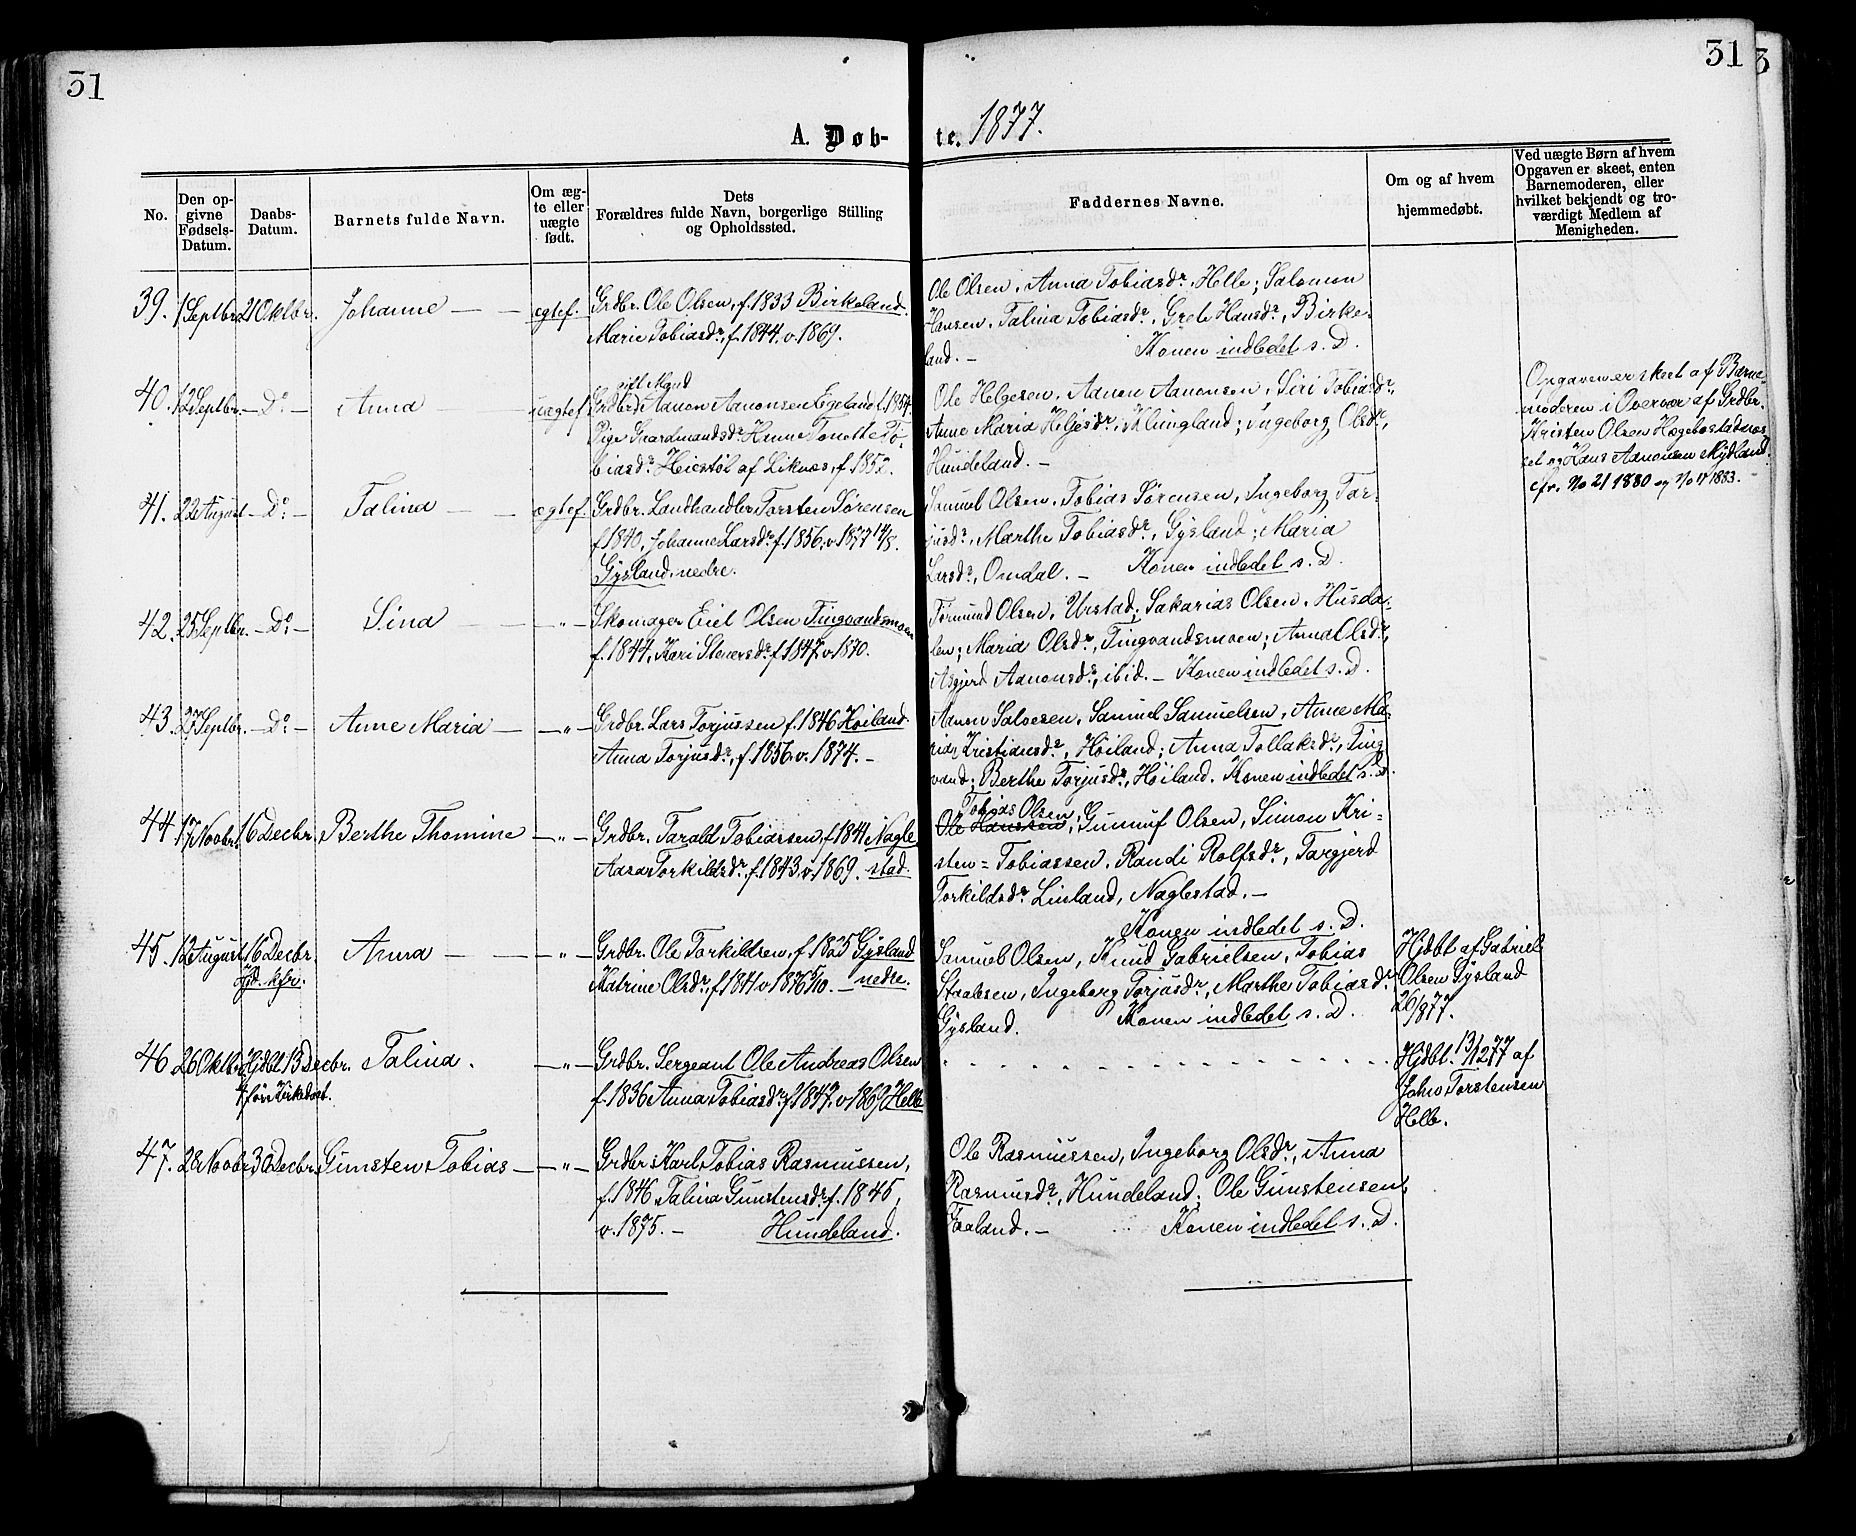 31
31
3
A. Døb-
te. 1877.
No.
Den op-
givne
Fødsels-
Datum.
Daabs-
Datum.
Barnets fulde Navn.
Om æg-
te eller
uægte
født.
Dets
Forældres fulde Navn, borgerlige Stilling
og Opholdssted.
Faddernes Navne.
Om og af hvem
hjemmedøbt.
Ved uægte Børn af hvem
Opgaven er skeet, enten
Barnemoderen, eller
hvilket bekjendt og tro-
værdigt Medlem af
Menigheden.
39. 1 Septbr. 21 Oktbr. Johanne — — ægtef. Grdbr. Ole Olsen, f. 1833 Birkeland.
Marie Tobiasdr., f. 1844, v. 1869.
Ole Olsen, Anna Tobiasdr., Helle; Salomon
Hansen, Talina Tobiasdr., Grete Hansdr., Birke-
land. — Konen indledet s. D.
40. 12 Septbr. — Do — Anna — — uægtef.
gift Mand
Grdbr. Aanon Aanonsen Egeland f. 1854.
Pige Gaardmandsdr. Hanne Tonette To-
biasdr. Heiestøl af Liknæs, f. 1852.
Ole Helgesen, Aanon Aanonsen, Siri Tobiasdr.,
Anne Maria Heljesdr., Klungland; Ingeborg Olsdr.,
Hundeland. —
Opgaven er skeet af Barne-
moderen i Overvær af Grdbr.
Kristen Olsen Hægebostadnes-
set og Hans Aanonsen Mydland.
cfr. No 21 1880 og No 17 1883. —
41. 22 August — Do — Talina — ægtef. Grdbr. Landhandler Torsten Sørensen
f. 1840, Johanne Larsdr. f. 1856, v. 1877 14/8.
Gysland, nedre.
Samuel Olsen, Tobias Sørensen, Ingeborg Tor-
jusdr., Marthe Tobiasdr., Gysland; Maria
Larsdr., Omdal. — Konen indledet s. D.
42. 25 Septbr. — Do — Sina — — „ — Skomager Eiel Olsen Tingvandsmoen
f. 1844, Kari Steversdr. f. 1847, v. 1870.
Tormund Olsen, Urstad; Sakarias Olsen, Husda-
len; Maria Olsdr., Tingvandsmoen; Anna Olsdr.,
Asgjerd Aanonsdr., ibid. — Konen indledet s. D.
43. 27 Septbr. — Do — Anne Maria — — „ — Grdbr. Lars Torjussen f. 1846 Høiland.
Anna Torjusdr., f. 1856, v. 1874. —
Aanon Salvesen, Samuel Samuelsen, Anne Ma-
ria Kristiansdr., Høiland; Anna Tollaksdr., Ting-
vand; Berthe Torjusdr., Høiland. Konen indledet s. D.
44. 17 Novbr. 16 Decbr. Berthe Thomine — „ — Grdbr. Tarald Tobiassen, f. 1841 Nagle-
Aasa Torkildsdr., f. 1843, v. 1869. stad.
Tobias Olsen
Ole Hanssen, Gunnuf Olsen, Simon Kri-
sten = Tobiassen, Randi Rolfsdr., Targjerd
Torkildsdr. Linland, Naglestad. —
Konen indledet s. D.
45. 12 August 16 Decbr. Anna — — „ — Grdbr. Ole Torkildsen, f. 1825 Gysland
Hjd. kfr. Katrine Olsdr., f. 1841 v. 1876 5/10. — nedre.
Samuel Olsen, Knud Gabrielsen, Tobias
Staalesen, Ingeborg Torjusdr., Marthe Tobiasdr.
Gysland. Konen indledet s. D.
Hjdbt af Gabriel
Olsen Gysland
26/877.
46. 26 Oktbr. Hjdbt 13 Decbr. Talina. — „ — Grdbr. Sergeant Ole Andreas Olsen
f. 1836 Anna Tobiasdr. f. 1847, v. 1869 Helle
Hjdbt. 13/1277 af
Johs Torstensen
Helle.
47. 28 Novbr. 30 Decbr. Gunsten Tobias — — „ — Grdbr. Karl Tobias Rasmussen,
f. 1846, Talina Gunstensdr. f. 1845,
v. 1875. — Hundeland.
Ole Rasmussen, Ingeborg Olsdr., Anna
Rasmusdr., Hundeland; Ole Gunstensen,
Faaland. — Konen indledet s. D.